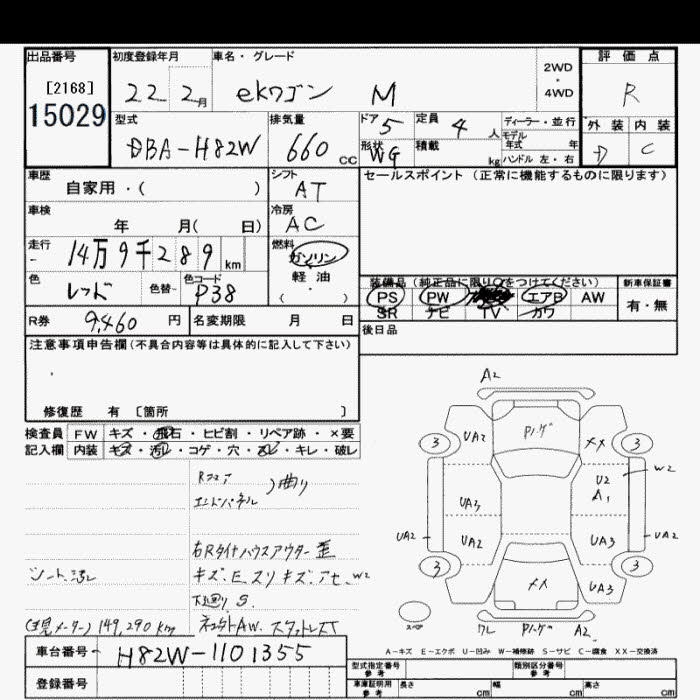 出品番号 初度登録年月 車名・グレード 2WD・4WD 評価点
[2168] 22 2月 ekワゴン M R
15029 型式 排気量 ドア 5 定員 4人 ディーラー・並行 外装 内装
DBA-H82W 660cc 形状 WG 積載 kg モデル年式 年 ハンドル 左・右 D C
車歴 シフト セールスポイント (正常に機能するものに限ります)
自家用・( ) AT
車検 冷房
年 月( 日) AC
走行 14万9千289km 燃料 ガソリン
軽油
・
( )
色 レッド 色替- 色コード P38
装備品 (純正品に限り○をつけてください) 新車保証書
PS PW エアB AW 有・無
SR ナビ TV カワ
R券 9,460円 名変期限 月 日 後日品
注意事項申告欄(不具合内容等は具体的に記入して下さい)
修復歴 有 〔箇所 〕
検査員 FW キズ・飛石・ヒビ割・リペア跡・×要
記入欄 内装 キズ・汚レ・コゲ・穴・スレ・キレ・破レ
Rフロア
エンドパネル )曲り
右Rタイヤハウスアウター歪
シート汚レ キズ.E.スリキズ.アセ.W2
下廻りS.
(現メーター)149,290km ネジ外AW. スタットレスT
A2
3 UA2 Pハゲ メメ 3
UA3 U2 A1 W2
UA2 UA2 UA3 UA2
3 メメ UA3 3
スペア ワレ Pハゲ A2
A-キズ E-エクボ U-凹み W-補修跡 S-サビ C-腐食 XX-交換済
車台番号 H82W-1101355
型式指定番号 参考 類別区分番号 参考
登録番号 車庫証明用 参考 長さ cm 幅 cm 高さ cm